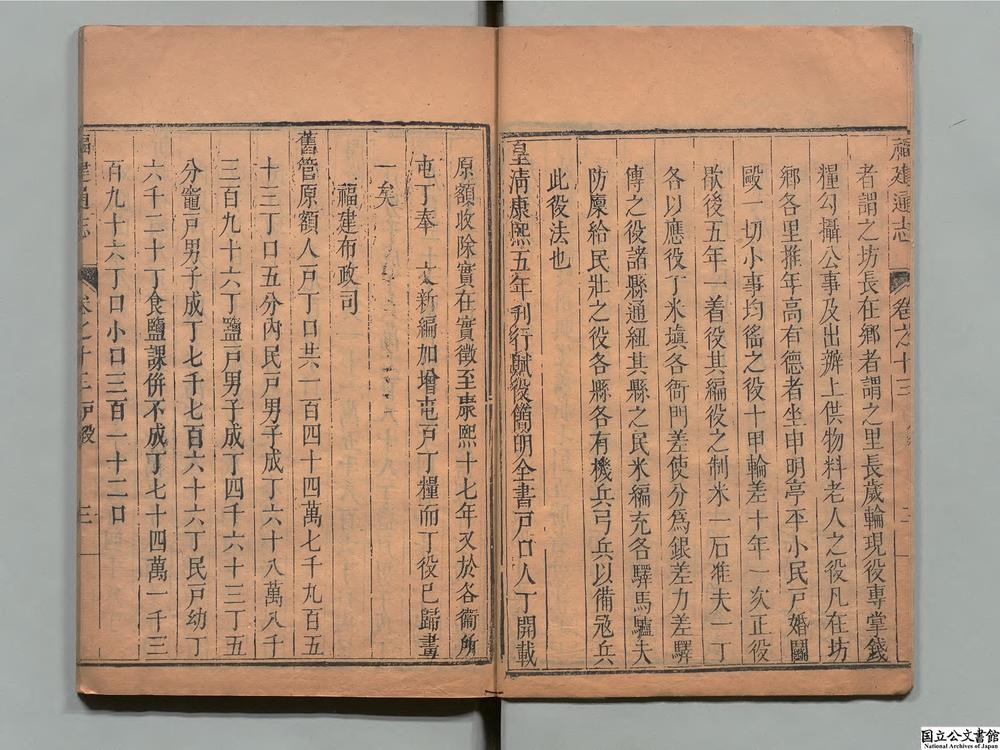 福建通志 卷之十三 二
者謂之坊長在鄉者謂之里長歲輪現役專掌錢
糧勾攝公事及出辦上供物料老人之役凡在坊
鄉各里推年高有德者坐申明亭平小民戶婚鬪
毆一切小事均徭之役十甲輪差十年一次正役
歇後五年一着役其編役之制米一石准夫一丁
各以應役丁米塡各衙門差使分爲銀差力差驛
傳之役諸縣通紐其縣之民米編充各驛馬驢夫
防廩給民壯之役各縣各有機兵弓兵以備冦兵
此役法也
皇淸康熙五年刋行賦役簡明全書戶口人丁開載
原額收除實在實徵至康熙十七年又於各衞所
屯丁奉 文新編加增屯戶丁糧而丁役已歸畫
一矣
福建布政司
舊管原額人戶丁口共一百四十四萬七千九百五
十三丁口五分內民戶男子成丁六十八萬八千
三百九十六丁鹽戶男子成丁四千六十三丁五
分竈戶男子成丁七千七百六十六丁民戶幼丁
六千二十丁食鹽課併不成丁七十四萬一千三
百九十六丁口小口三百一十二口
福建通志 卷之十三 戸役 三
国立公文書館
National Archives of Japan